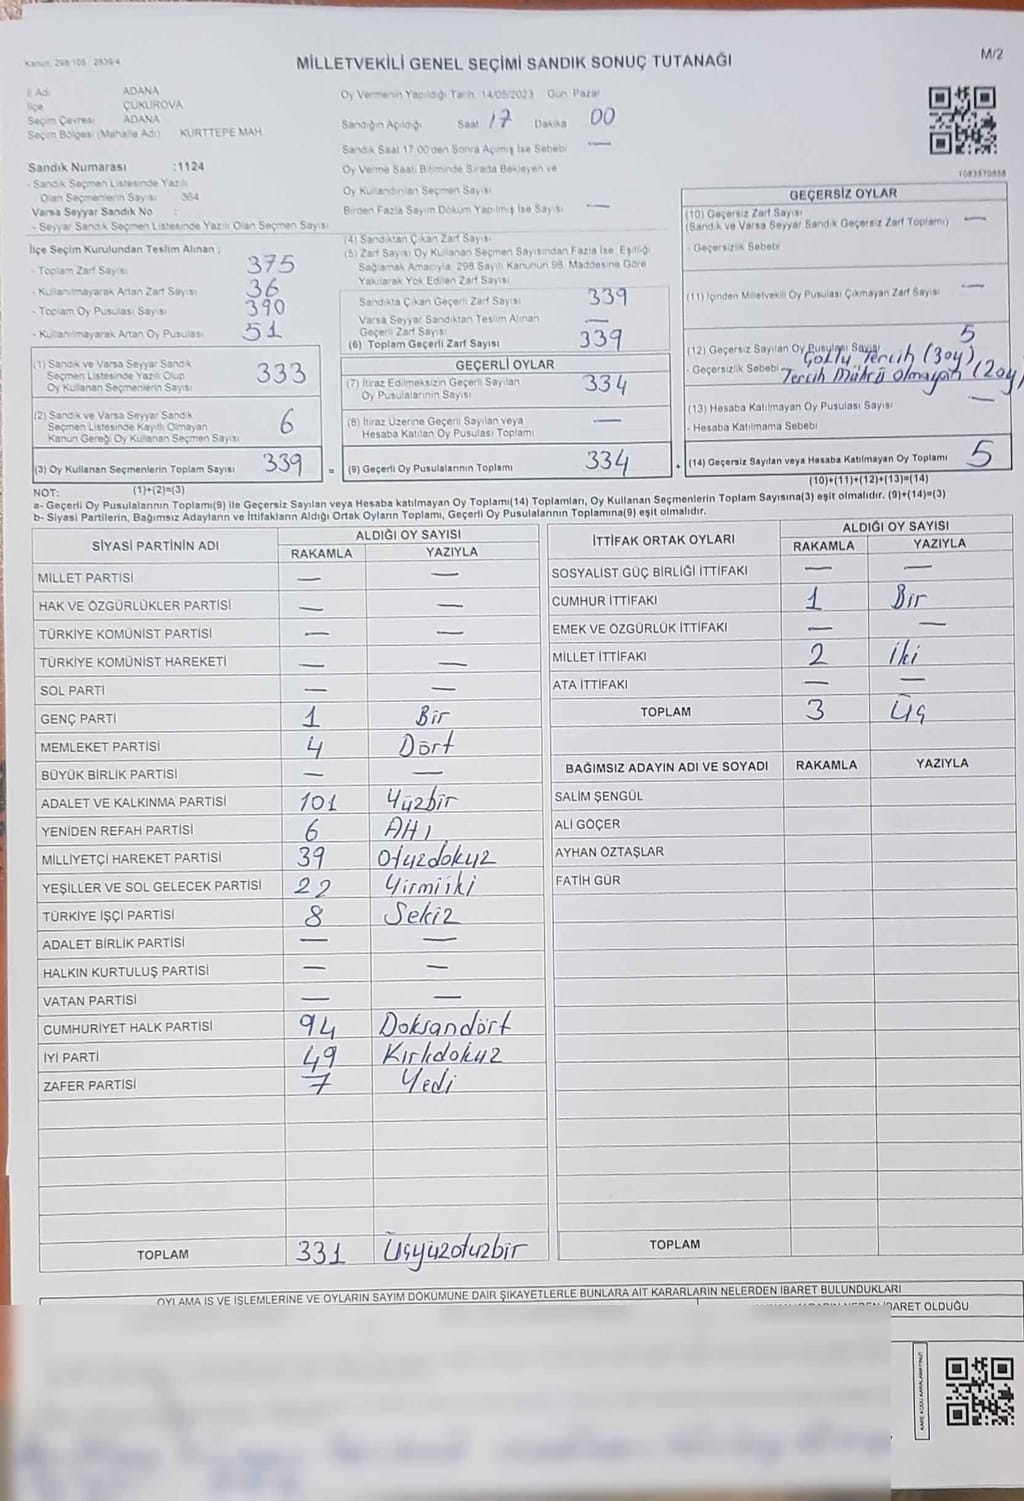 Kanun, 298/105 2839/4
MİLLETVEKİLİ GENEL SEÇİMİ SANDIK SONUÇ TUTANAĞI
M/2
İl Adı ADANA
İlçe ÇUKUROVA
Seçim Çevresi ADANA
Seçim Bölgesi (Mahalle Adı) KURTTEPE MAH.
Sandık Numarası :1124
- Sandık Seçmen Listesinde Yazılı
Olan Seçmenlerin Sayısı 364
Varsa Seyyar Sandık No :
- Seyyar Sandık Seçmen Listesinde Yazılı Olan Seçmen Sayısı
Oy Vermenin Yapıldığı Tarih 14/05/2023 Gün Pazar
Sandığın Açıldığı Saat 17 Dakika 00
Sandık Saat 17.00'den Sonra Açılmış İse Sebebi —
Oy Verme Saati Bitiminde Sırada Bekleyen ve
Oy Kullandırılan Seçmen Sayısı
Birden Fazla Sayım Döküm Yapılmış İse Sayısı —
1083570868
İlçe Seçim Kurulundan Teslim Alınan ;
- Toplam Zarf Sayısı 375
- Kullanılmayarak Artan Zarf Sayısı 36
- Toplam Oy Pusulası Sayısı 390
- Kullanılmayarak Artan Oy Pusulası 51
(1) Sandık ve Varsa Seyyar Sandık
Seçmen Listesinde Yazılı Olup
Oy Kullanan Seçmenlerin Sayısı 333
(2) Sandık ve Varsa Seyyar Sandık
Seçmen Listesinde Kayıtlı Olmayan
Kanun Gereği Oy Kullanan Seçmen Sayısı 6
(3) Oy Kullanan Seçmenlerin Toplam Sayısı 339 =
(1)+(2)=(3)
(4) Sandıktan Çıkan Zarf Sayısı
(5) Zarf Sayısı Oy Kullanan Seçmen Sayısından Fazla İse, Eşitliği
Sağlamak Amacıyla, 298 Sayılı Kanunun 98. Maddesine Göre
Yakılarak Yok Edilen Zarf Sayısı
Sandıkta Çıkan Geçerli Zarf Sayısı 339
Varsa Seyyar Sandıktan Teslim Alınan
Geçerli Zarf Sayısı —
(6) Toplam Geçerli Zarf Sayısı 339
GEÇERLİ OYLAR
(7) İtiraz Edilmeksizin Geçerli Sayılan
Oy Pusulalarının Sayısı 334
(8) İtiraz Üzerine Geçerli Sayılan veya
Hesaba Katılan Oy Pusulası Toplamı —
(9) Geçerli Oy Pusulalarının Toplamı 334 +
GEÇERSİZ OYLAR
(10) Geçersiz Zarf Sayısı
(Sandık ve Varsa Seyyar Sandık Geçersiz Zarf Toplamı) —
- Geçersizlik Sebebi
(11) İçinden Milletvekili Oy Pusulası Çıkmayan Zarf Sayısı —
(12) Geçersiz Sayılan Oy Pusulası Sayısı 5
- Geçersizlik Sebebi Çoklu Tercih (3oy),
Tercih Mührü olmayan (2oy)
(13) Hesaba Katılmayan Oy Pusulası Sayısı —
- Hesaba Katılmama Sebebi
(14) Geçersiz Sayılan veya Hesaba Katılmayan Oy Toplamı 5
(10)+(11)+(12)+(13)=(14)
NOT:
a- Geçerli Oy Pusulalarının Toplamı(9) ile Geçersiz Sayılan veya Hesaba katılmayan Oy Toplamı(14) Toplamları, Oy Kullanan Seçmenlerin Toplam Sayısına(3) eşit olmalıdır. (9)+(14)=(3)
b- Siyasi Partilerin, Bağımsız Adayların ve İttifakların Aldığı Ortak Oyların Toplamı, Geçerli Oy Pusulalarının Toplamına(9) eşit olmalıdır.
SİYASİ PARTİNİN ADI ALDIĞI OY SAYISI
RAKAMLA YAZIYLA
MİLLET PARTİSİ — —
HAK VE ÖZGÜRLÜKLER PARTİSİ — —
TÜRKİYE KOMÜNİST PARTİSİ — —
TÜRKİYE KOMÜNİST HAREKETİ — —
SOL PARTİ — —
GENÇ PARTİ 1 Bir
MEMLEKET PARTİSİ 4 Dört
BÜYÜK BİRLİK PARTİSİ — —
ADALET VE KALKINMA PARTİSİ 101 Yüzbir
YENİDEN REFAH PARTİSİ 6 Altı
MİLLİYETÇİ HAREKET PARTİSİ 39 Otuzdokuz
YEŞİLLER VE SOL GELECEK PARTİSİ 22 Yirmiiki
TÜRKİYE İŞÇİ PARTİSİ 8 Sekiz
ADALET BİRLİK PARTİSİ — —
HALKIN KURTULUŞ PARTİSİ — —
VATAN PARTİSİ — —
CUMHURİYET HALK PARTİSİ 94 Doksandört
İYİ PARTİ 49 Kırkdokuz
ZAFER PARTİSİ 7 Yedi
TOPLAM 331 Üçyüzotuzbir
İTTİFAK ORTAK OYLARI ALDIĞI OY SAYISI
RAKAMLA YAZIYLA
SOSYALİST GÜÇ BİRLİĞİ İTTİFAKI — —
CUMHUR İTTİFAKI 1 Bir
EMEK VE ÖZGÜRLÜK İTTİFAKI — —
MİLLET İTTİFAKI 2 İki
ATA İTTİFAKI — —
TOPLAM 3 Üç
BAĞIMSIZ ADAYIN ADI VE SOYADI RAKAMLA YAZIYLA
SALİM ŞENGÜL
ALİ GÖÇER
AYHAN ÖZTAŞLAR
FATİH GÜR
TOPLAM
OYLAMA İŞ VE İŞLEMLERİNE VE OYLARIN SAYIM DÖKÜMÜNE DAİR ŞİKAYETLERLE BUNLARA AİT KARARLARIN NELERDEN İBARET BULUNDUKLARI
İBARET OLDUĞU